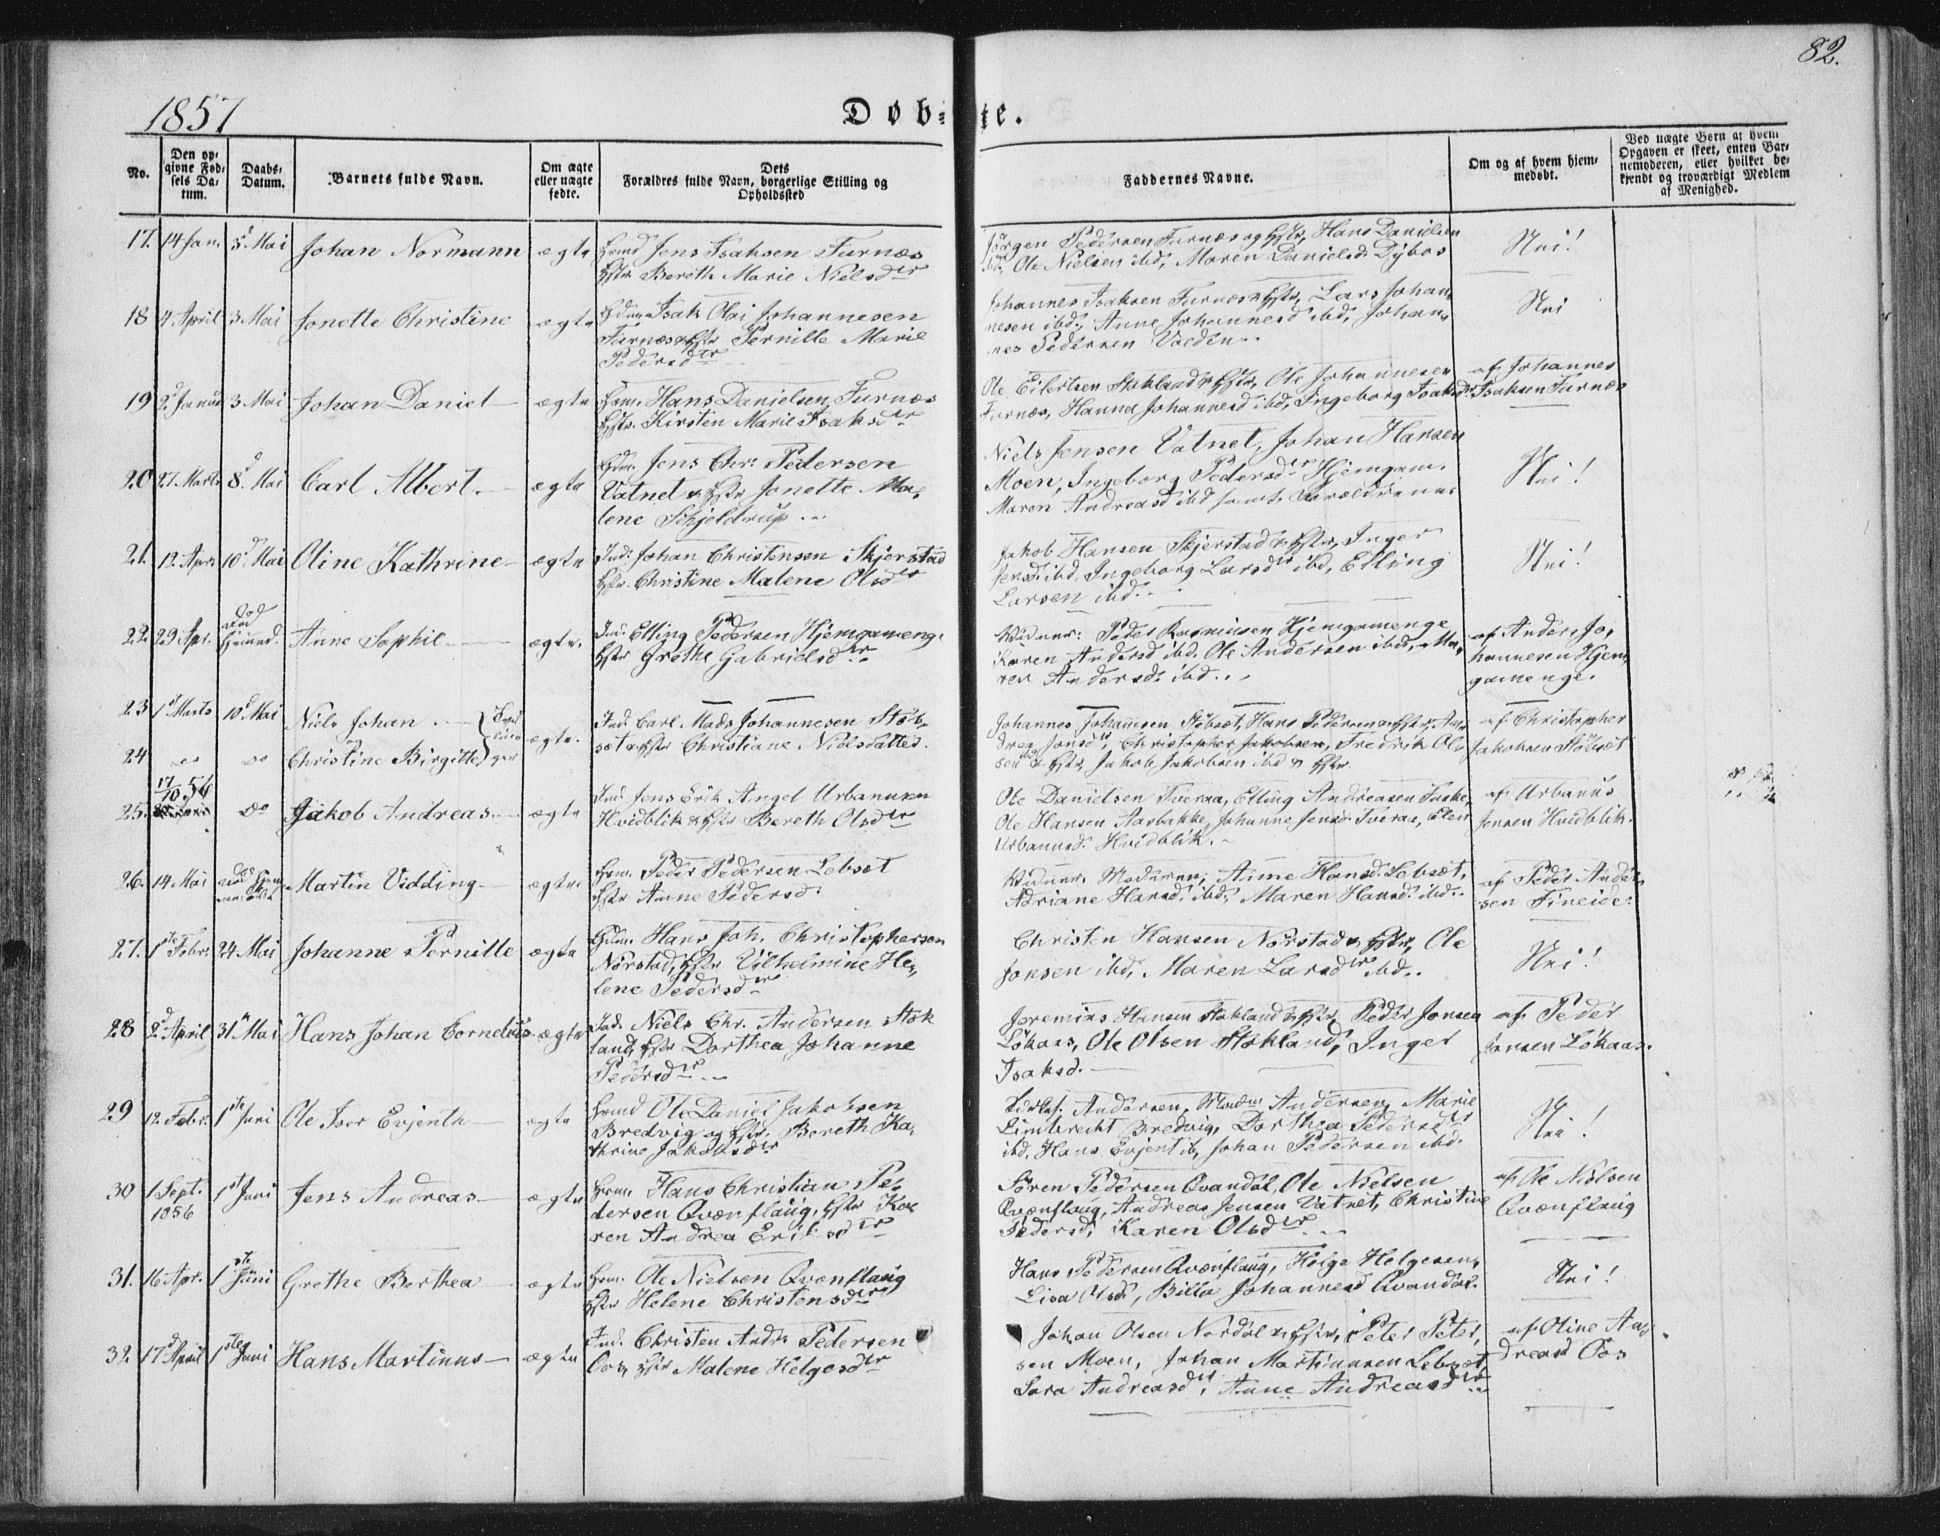 82.
1857
Døb=te.
No.
Den op=
givne Fød=
sels Da=
tum.
Daabs=
Datum.
Barnets fulde Navn.
Om ægte
eller uægte
fødte.
Dets
Forældres fulde Navn, borgerlige Stilling og
Opholdssted
Faddernes Navne.
Om og af hvem hjem=
medøbt.
Ved uægte Børn at hvem
Opgaven er skeet, enten Bar=
nemoderen, eller hvilket be=
kjendt og troværdigt Medlem
af Menighed.
17. 14 Jan. 3 Mai Johan Normann ægte
Jens Isaksen Furnæs
Berith Marie Nielsdr
Jørgen Pedersen Furnæs og Hstr, Hans Danielsen
ibd, Ole Nielsen ibd, Maren Danielsd Dybos
Nei!
18 4 April 3 Mai Jonette Christine ægte
Isak Olai Johannesen
Furnæs & Hstr Pernille Marie
Pedersdr
Johannes Isaksen Furnæs & Hstr, Lars Johan,
nesen ibd, Anne Johannesd ibd, Johan,
nes Pedersen Valden
Nei
19 3 Mai Johan Daniel ægte
Hans Danielsen Furnæs
Hstr. Kirsten Marie Isaksdr
Ole Eilertsen Stokland & Hstr, Ole Johannesen
Furnæs, Hanna Johannesd ibd, Ingeborg Isaksdr
af Johannes
Isaksen Furnæs
20 27 Marts 8 Mai Carl Albert. ægte
Jens Chr. Pedersen
Vatnet & Hstr Jonette Ma,
lene Schjeldrup
Niels Jensen Vatnet, Johan Hansen
Moen, Ingeborg Pedersdr Hjemgam.
Maren Andreasd ibd samt Forældrene
Nei!
21. 12 Apr. 10 Mai Oline Kathrine ægte
Ind. Johan Christensen Skjerstad
Hstr. Christine Malene Olsdr
Jakob Hansen Skjerstad & Hstr, Inger
Jensd. ibd, Ingeborg Larsdr ibd, Elling
Larsen ibd.
Nei!
22. 29 Apr. Anne Sophie ægte.
Ind. Elling Pedersen Hjemgameng.
Hstr Grethe Gabrielsdr
Vidner: Peder Rasmusen Hjemgamenge
Karen Andersd ibd. Ole Andersen ibd, Ma,
ren Andersd. ibd.
af Anders Jo,
hannesen Hjem,
gamenge.
23 1 Marts 10 Mai Niels Johan
24 do do Christine Birgitte ægte.
Ind. Carl Mads Johannesen Støb,
sæt & Hstr Christiane Nielsdatter.
Johannes Johannesen Støbsæt, Hans Pedersen & Hstr, An,
drea Jonsdr, Christopher Jakobsen, Fredrik Ol,
sen ibd & Hstr, Jakob Jakobsen ibd & Hstr
af Christopher
Jakobsen Støbsæt
25. 17/10 56 do Jakob Andreas. ægte
Ind. Jens Erik Angel Urbanusen
Hvidblik & Hstr Bereth Olsdr
Ole Danielsen Tveraa, Elling Andreasen Fuske,
Ole Hansen Aasbakke, Johanne Jensd. Tveraa, Elen
Urbanusd. Hvidblik.
af Urbanus
Jensen Hvidblik.
26. 14 Mai Martin Vidding ægte
Peder Pedersen Lebsæt
Hstr Anne Pedersd.
Vidner. Moderen, Anne Hansd. Lebsæt,
Adriane Hansd. ibd, Maren Hansd. ibd.
af Peder Ander
sen Fineide.
27. 1ste Febr. 24 Mai Johanne Pernille ægte
Hans Joh. Christophersen
Nørstad, Hstr Vilhelmine He,
lene Pedersdr
Christen Hansen Nørstad & Hstr, Ole
Jonsen ibd, Maren Larsdr ibd.
Nei!
28 2 April 31 Mai Hans Johan Cornelius ægte
Ind. Niels Chr. Andersen Stok
land, Hstr Dorthea Johanne
Pedersdr
Jeremias Hansen Stokland & Hstr, Peder Jensen
Løkaas, Ole Olsen Stokland, Inger
Isaksd.
af Peder
Jensen Løkaas.
29 12 Febr. 1ste Juni Ole Iver Evjenth ægte
Ole Daniel Jakobsen
Bredvig og Hstr. Bereth Ka,
thrine Jakobsdr
Andersen, Andersen, Marie
Limbrecht Bredvig, Dorthea Pedersdr
ibd. Hans Evjenth, Johan Pedersen ibd.
Nei!
30 1 Sept. 1856 1st Juni Jens Andreas ægte
Hans Christian Pe,
dersen Qvænflaug, Hstr Ka,
ren Andrea Eriksdr
Søren Pedersen Qvandal, Ole Nielsen
Qvænflaug, Andreas Jensen Vatnet, Christine
Pedersd, Karen Olsdr
af Ole Nielsen
Qvænflaug
31. 16 Apr. 1ste Juni Grethe Berthea ægte
Ole Nielsen Qvænflaug
Hstr Helene Christensdr
Hans Pedersen Qvænflaug, Helge Helgesen,
Lisa Olsd, Billa Johannesd Qvandal.
Nei!
32. 17 April 1ste Juni Hans Martinus ægte
Ind. Christen Andr. Pedersen
Oos, Hstr Malene Helgesdr
Johan Olsen Nordal & Hstr, Peter Peter,
sen Moen, Johan Martinusen Lebsæt,
Sara Andreasdr, Anne Andreasdr
af Oline An,
dreasd Oos